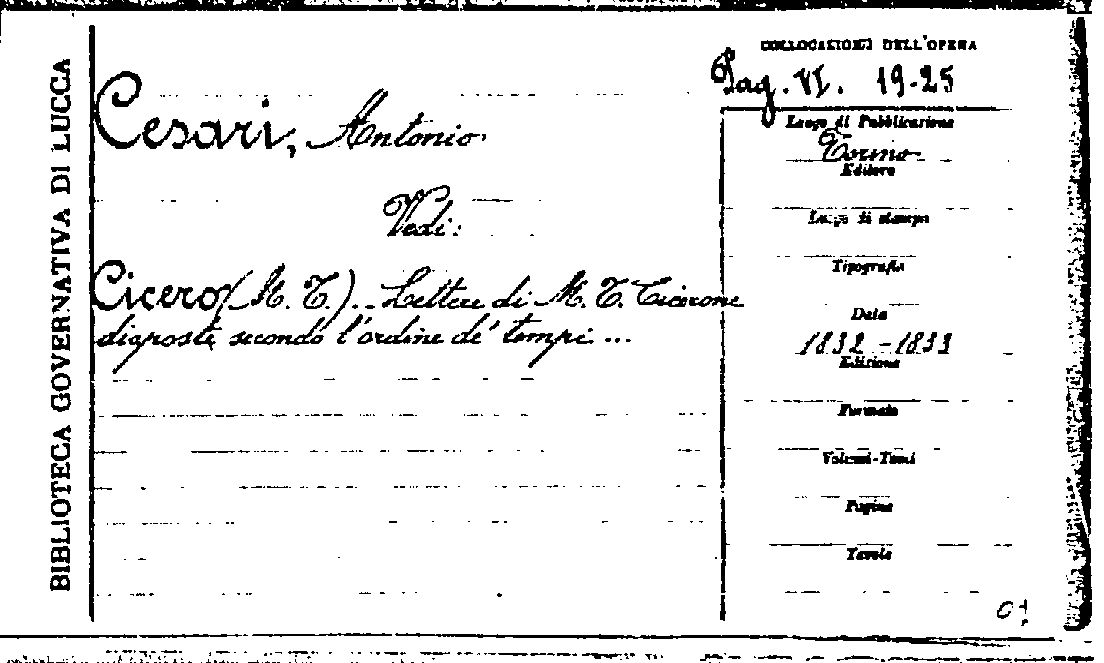 BIBLIOTECA GOVERNATIVA DI LUCCA
COLLOCAZIONE DELL'OPERA
Pag. VI. 19-25
Cesari, Antonio
Vedi:
Cicero (M. T.). Lettere di M. T. Cicerone
disposte secondo l'ordine de' tempi ...
Luogo di Pubblicazione
Torino
Editore
Luogo di stampa
Tipografia
Data
1832-1833
Edizione
Formato
Volumi-Tomi
Pagine
Tavole